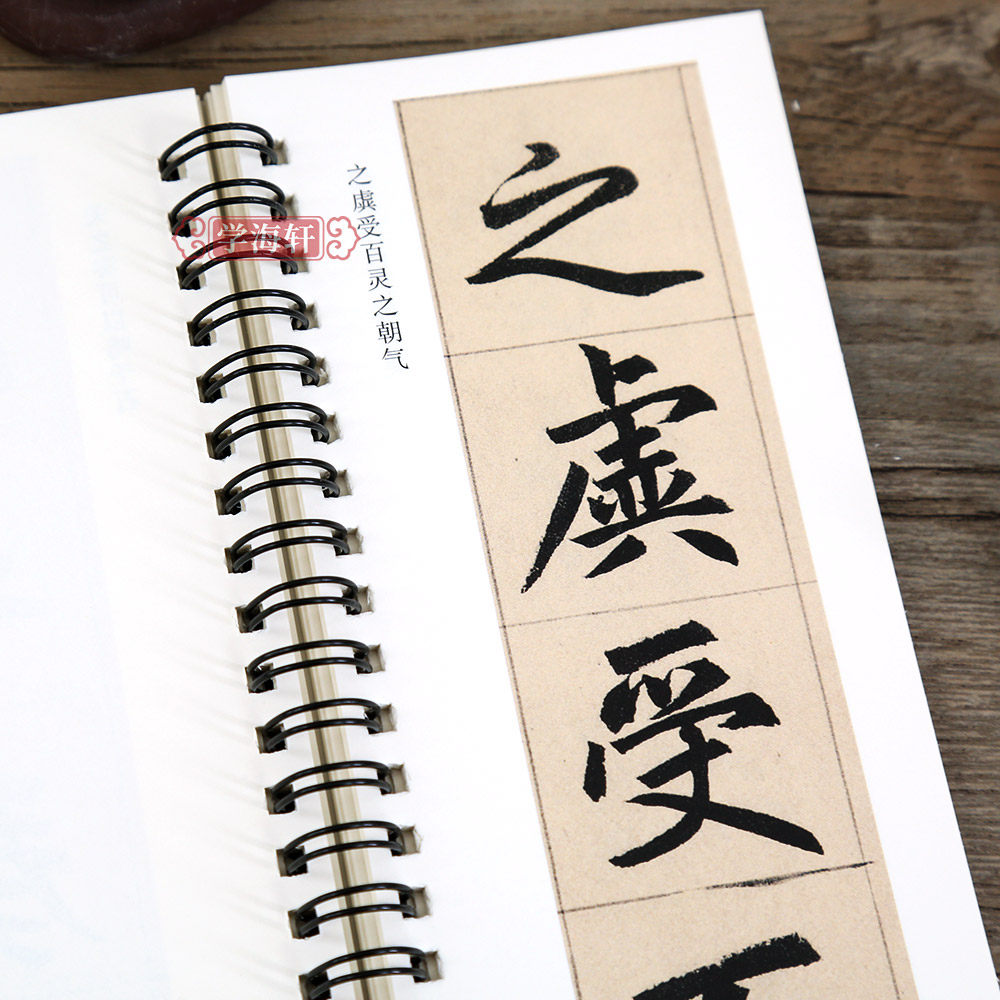 之虡受百灵之朝气
之虡受百
学海轩